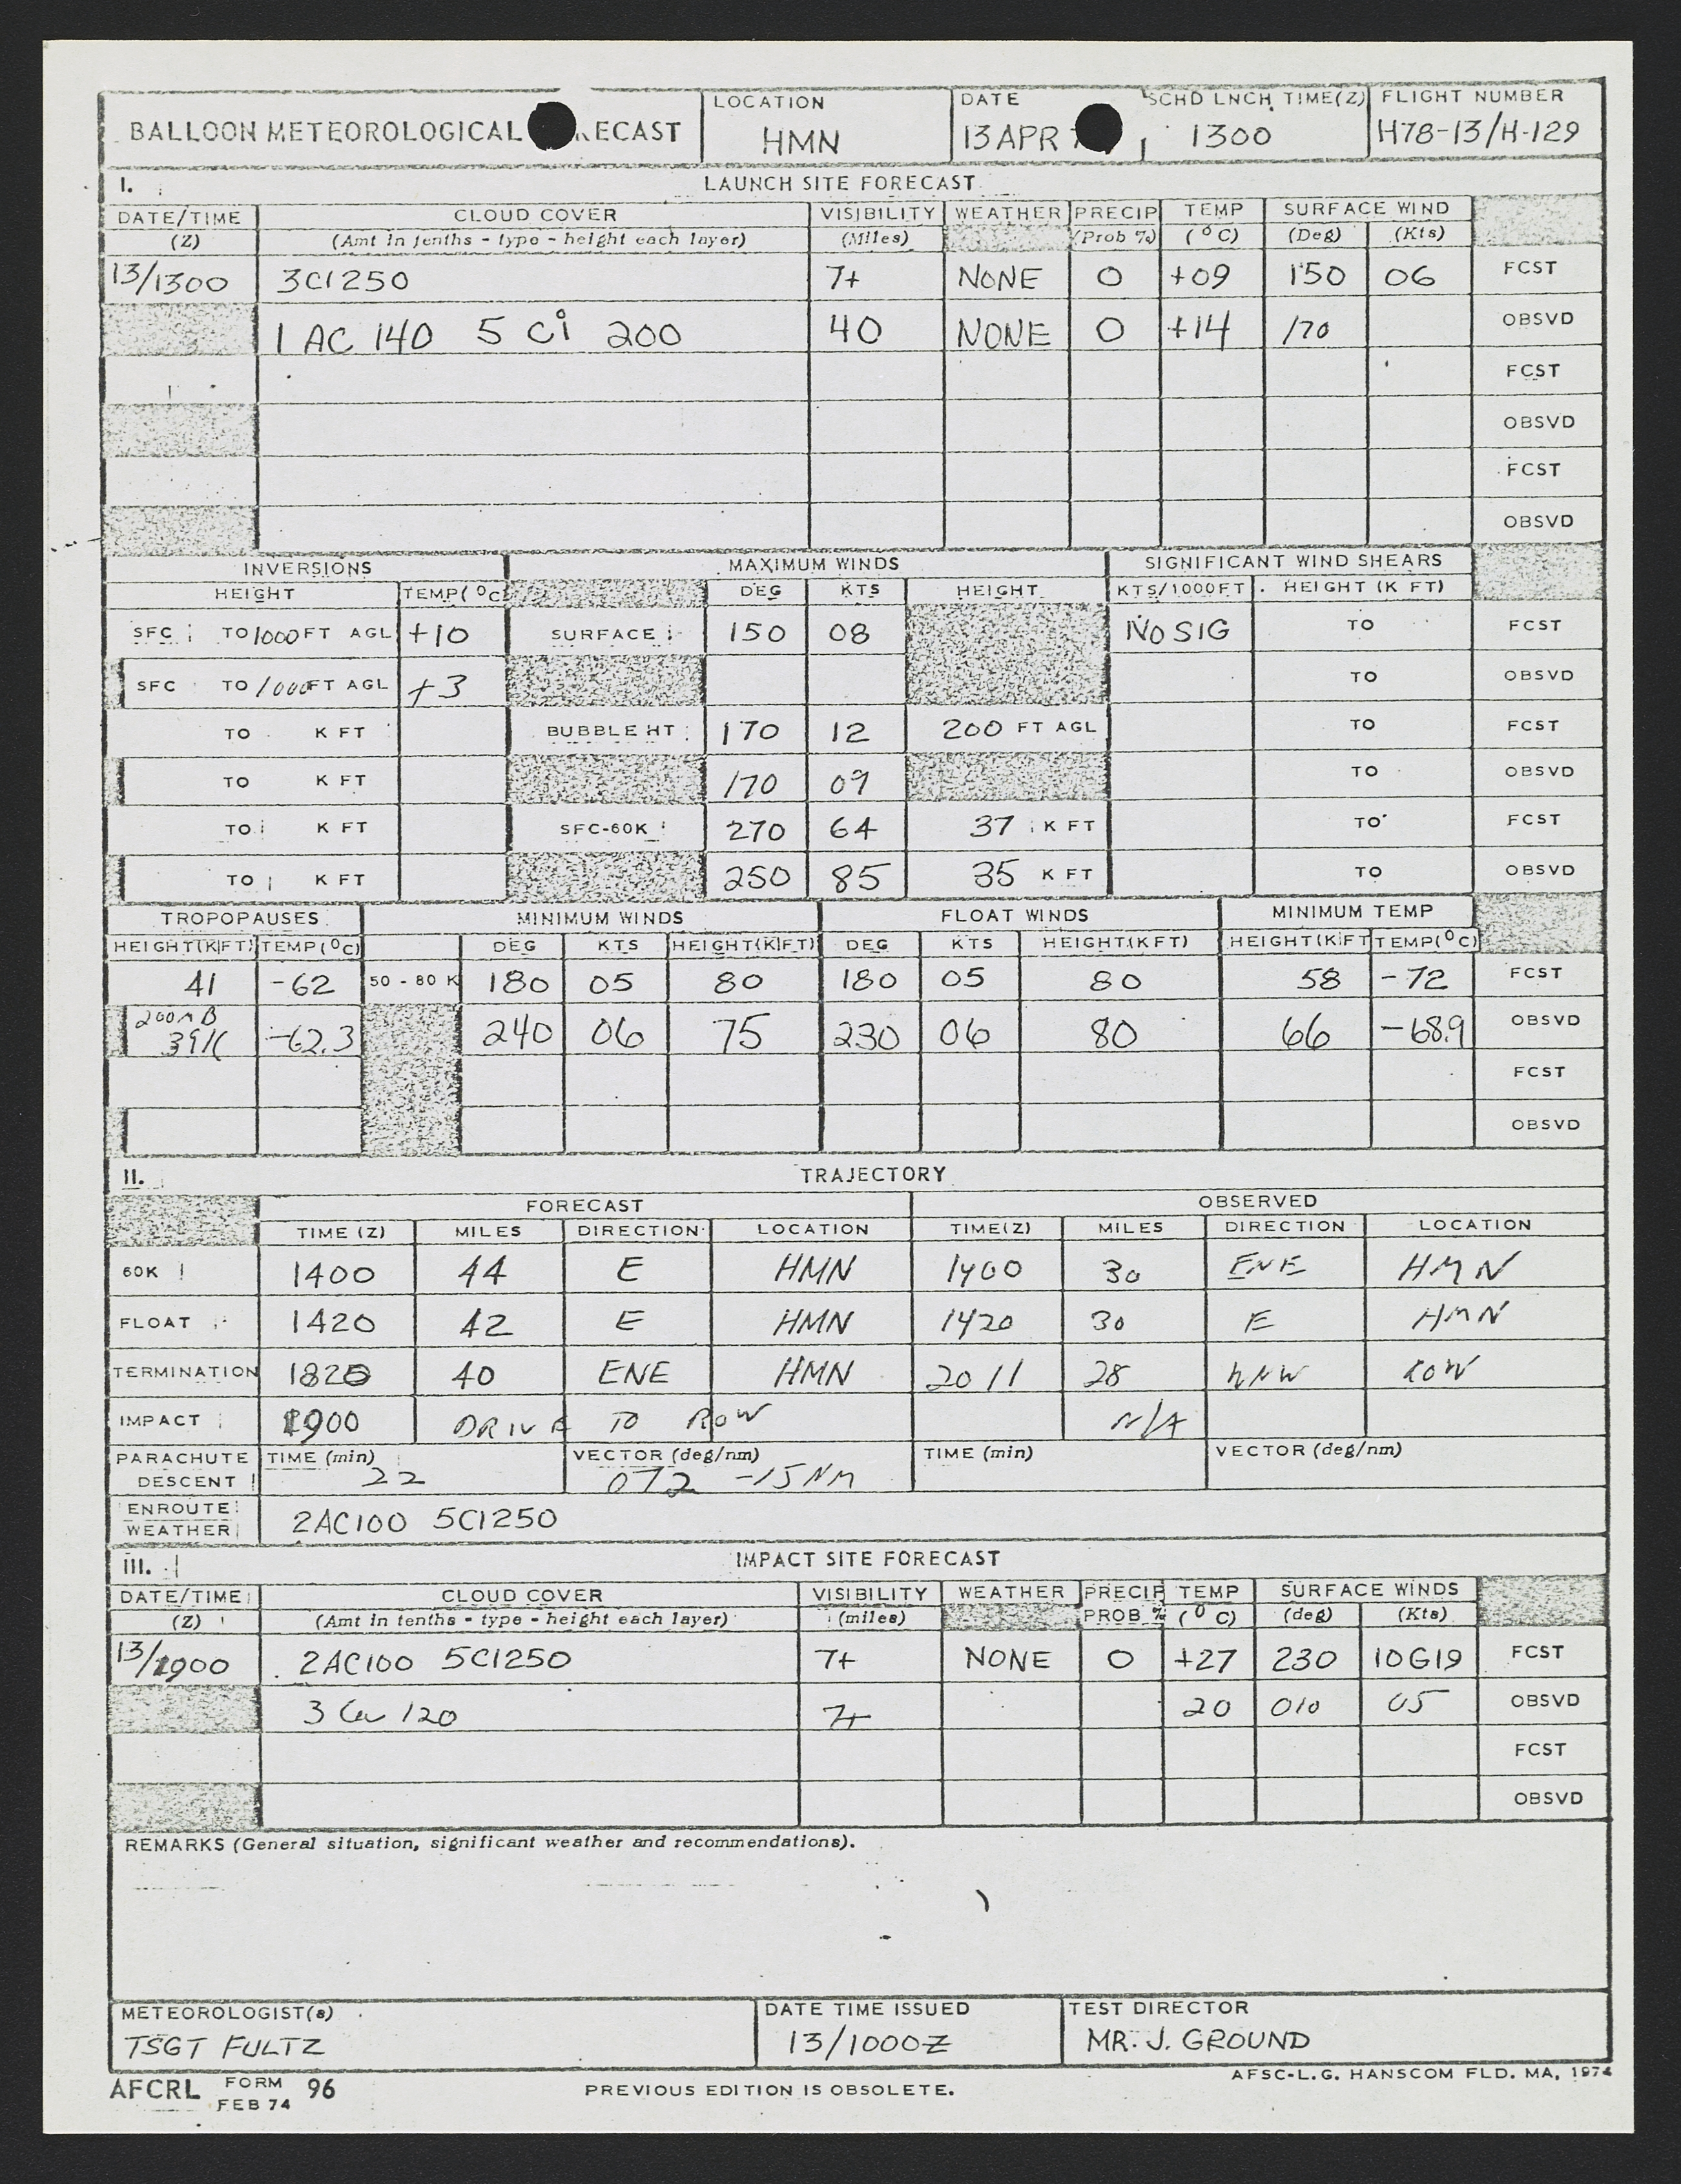 BALLOON METEOROLOGICAL RECAST LOCATION DATE SCHD LNCH TIME(Z) FLIGHT NUMBER
HMN 13 APR 1300 H78-13/H-129
I. LAUNCH SITE FORECAST
DATE/TIME CLOUD COVER VISIBILITY WEATHER PRECIP TEMP SURFACE WIND
(Z) (Amt in tenths - type - height each layer) (Miles) (Prob %) (°C) (Deg) (Kts)
13/1300 3CI250 7+ NONE 0 +09 150 06 FCST
1 AC 140 5 Ci 200 40 NONE 0 +14 170 OBSVD
FCST
OBSVD
FCST
OBSVD
INVERSIONS MAXIMUM WINDS SIGNIFICANT WIND SHEARS
HEIGHT TEMP(°C) DEG KTS HEIGHT KTS/1000FT HEIGHT (K FT)
SFC TO 1000 FT AGL +10 SURFACE 150 08 NO SIG TO FCST
SFC TO 1000 FT AGL +3 TO OBSVD
TO K FT BUBBLE HT 170 12 200 FT AGL TO FCST
TO K FT 170 09 TO OBSVD
TO K FT SFC-60K 270 64 37 K FT TO FCST
TO K FT 250 85 35 K FT TO OBSVD
TROPOPAUSES MINIMUM WINDS FLOAT WINDS MINIMUM TEMP
HEIGHT(KFT) TEMP(°C) DEG KTS HEIGHT(KFT) DEG KTS HEIGHT(KFT) HEIGHT(KFT) TEMP(°C)
41 -62 50 - 80 K 180 05 80 180 05 80 58 -72 FCST
200MB
39K -62.3 240 06 75 230 06 80 66 -68.9 OBSVD
FCST
OBSVD
II. TRAJECTORY
FORECAST OBSERVED
TIME (Z) MILES DIRECTION LOCATION TIME(Z) MILES DIRECTION LOCATION
60K 1400 44 E HMN 1400 30 ENE HMN
FLOAT 1420 42 E HMN 1420 30 E HMN
TERMINATION 1820 40 ENE HMN 2011 28 WNW ROW
IMPACT 1900 DRIVE TO ROW N/A
PARACHUTE TIME (min) VECTOR (deg/nm) TIME (min) VECTOR (deg/nm)
DESCENT 22 072 -15NM
ENROUTE
WEATHER 2AC100 5CI250
III. IMPACT SITE FORECAST
DATE/TIME CLOUD COVER VISIBILITY WEATHER PRECIP TEMP SURFACE WINDS
(Z) (Amt in tenths - type - height each layer) (miles) PROB % (°C) (deg) (Kts)
13/1900 2AC100 5CI250 7+ NONE 0 +27 230 10G19 FCST
3 Cu 120 7+ 20 010 05 OBSVD
FCST
OBSVD
REMARKS (General situation, significant weather and recommendations).
METEOROLOGIST(s) DATE TIME ISSUED TEST DIRECTOR
TSGT FULTZ 13/1000Z MR. J. GROUND
AFCRL FORM 96 PREVIOUS EDITION IS OBSOLETE. AFSC-L.G. HANSCOM FLD. MA, 1974
FEB 74